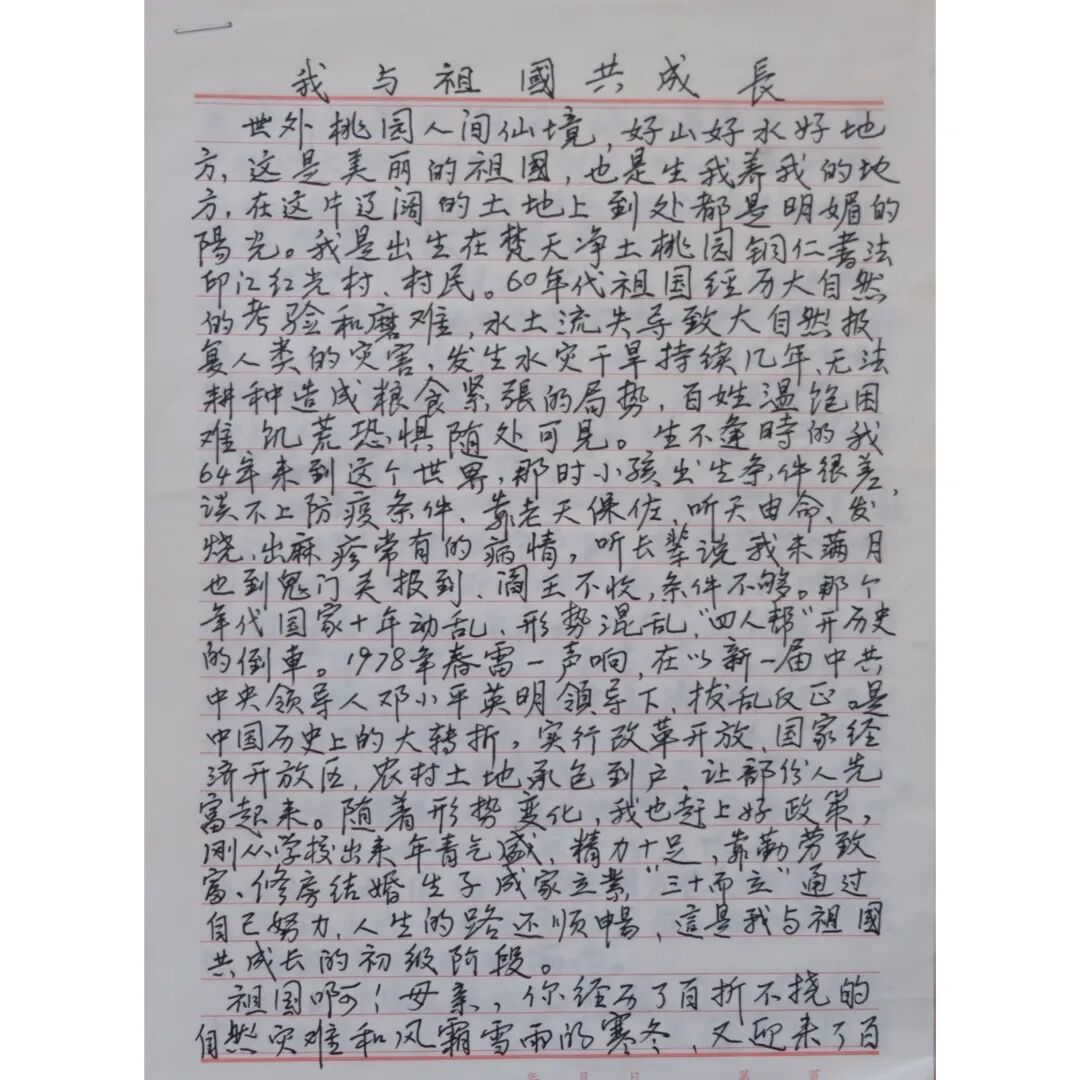 我与祖國共成長
世外桃园人间仙境,好山好水好地
方,这是美丽的祖國,也是生我养我的地
方,在这片辽阔的土地上到处都是明媚的
陽光。我是出生在梵天净土桃园铜仁書法
印江红光村、村民。60年代祖国经历大自然
的考验和磨难,水土流失导致大自然报
复人类的灾害,发生水灾干旱持续几年、无法
耕种造成粮食紧張的局势,百姓温饱困
难、饥荒恐惧随处可见。生不逢時的我
64年来到这个世界,那时小孩出生条件很差,
谈不上防疫条件、靠老天保佐、听天由命、发
烧,出麻疹常有的病情,听长辈说我未满月
也到鬼门关报到、阎王不收,条件不够。那个
年代国家十年动乱、形势混乱,"四人帮"开历史
的倒車。1978年春雷一声响,在以新一届中共
中央领导人邓小平英明領导下、拔乱反正。是
中国历史上的大转折,实行改革开放、国家经
济开放区,农村土地承包到户,让部份人先
富起来。随着形势变化,我也赶上好政策,
刚从学校出来年青气盛,精力十足,靠勤劳致
富、修房结婚生子成家立業"三十而立"通过
自己努力,人生的路还顺暢,這是我与祖國
共成长的初级阶段。
祖国啊!母亲,你经历了百折不挠的
自然灾难和风霜雪雨的寒冬,又迎来了百
年 月 日 第 页